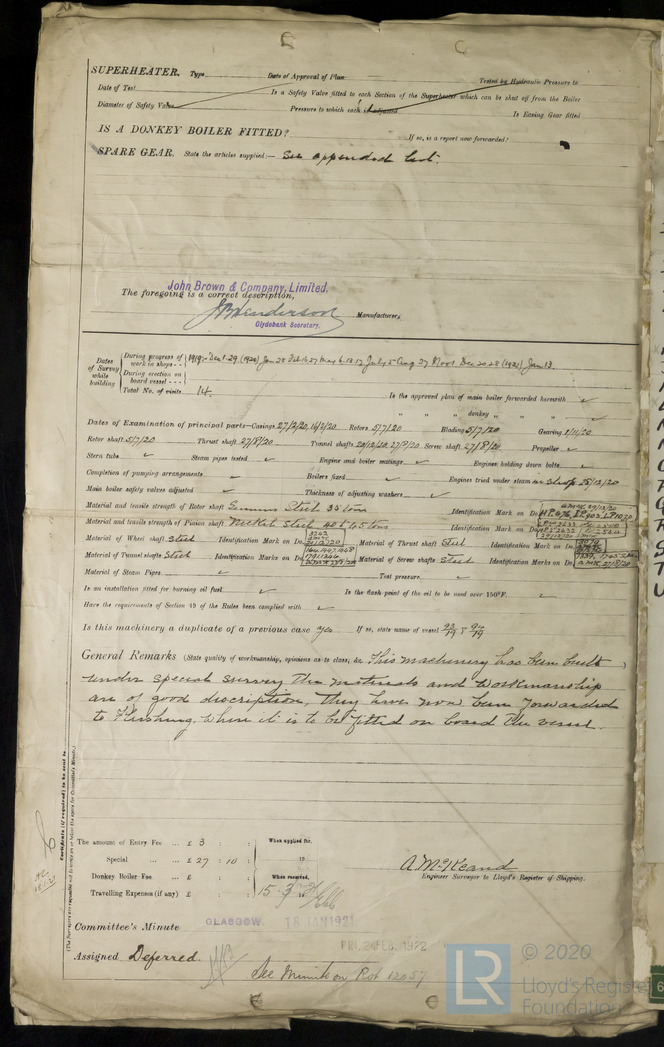 SUPERHEATER. Type Date of Approval of Plan Tested by Hydraulic Pressure to
Date of Test Is a Safety Valve fitted to each Section of the Superheater which can be shut off from the Boiler
Diameter of Safety Valve Pressure to which each is adjusted Is Easing Gear fitted
IS A DONKEY BOILER FITTED? If so, is a report now forwarded?
SPARE GEAR. State the articles supplied:— See appended list.
John Brown & Company, Limited.
The foregoing is a correct description,
J Henderson Manufacturer.
Clydebank Secretary.
Dates of Survey while building
During progress of work in shops - - 1919:- Dec 1.29. (1920) Jan 28 Feb 16.27 May 6.13.17 July 5 Aug 27 Nov 1 Dec 20.28 (1921) Jan 13.
During erection on board vessel - - -
Total No. of visits 14. Is the approved plan of main boiler forwarded herewith
" " " donkey "
Dates of Examination of principal parts—Casings 27/2/20. 16/2/20 Rotors 5/7/20 Blading 5/7/20 Gearing 1/11/20
Rotor shaft 5/7/20 Thrust shaft 27/8/20 Tunnel shafts 20/12/20. 27/8/20 Screw shaft 27/8/20 Propeller
Stern tube Steam pipes tested Engine and boiler seatings Engines holding down bolts
Completion of pumping arrangements Boilers fixed Engines tried under steam in shops 28/12/20
Main boiler safety valves adjusted Thickness of adjusting washers
Material and tensile strength of Rotor shaft Siemens Steel 35 tons Identification Mark on Do.
Material and tensile strength of Pinion shaft Nickel Steel 40 & 45 tons Identification Mark on Do.
Material of Wheel shaft Steel Identification Mark on Do. Material of Thrust shaft Steel Identification Mark on Do.
Material of Tunnel shafts Steel Identification Marks on Do. Material of Screw shafts Steel Identification Marks on Do.
Material of Steam Pipes Test pressure
Is an installation fitted for burning oil fuel Is the flash point of the oil to be used over 150°F.
Have the requirements of Section 49 of the Rules been complied with
Is this machinery a duplicate of a previous case yes If so, state name of vessel
General Remarks (State quality of workmanship, opinions as to class, &c. This machinery has been built
under special survey. The materials and workmanship
are of good description, they have now been forwarded
to Flushing, where it is to be fitted on board the vessel.
Certificate (if required) to be sent to
The amount of Entry Fee ... £ 3 : : When applied for,
Special ... ... £ 27 : 10 : 19
Donkey Boiler Fee ... £ : : When received,
Travelling Expenses (if any) £ : : 15.3
A. McKeand
Engineer Surveyor to Lloyd's Register of Shipping.
Committee's Minute GLASGOW. 18 JAN 1921
FRI. 24 FEB. 1922
Assigned Deferred.
See Minute on Rpt 12057
LR © 2020
Lloyd's Register
Foundation